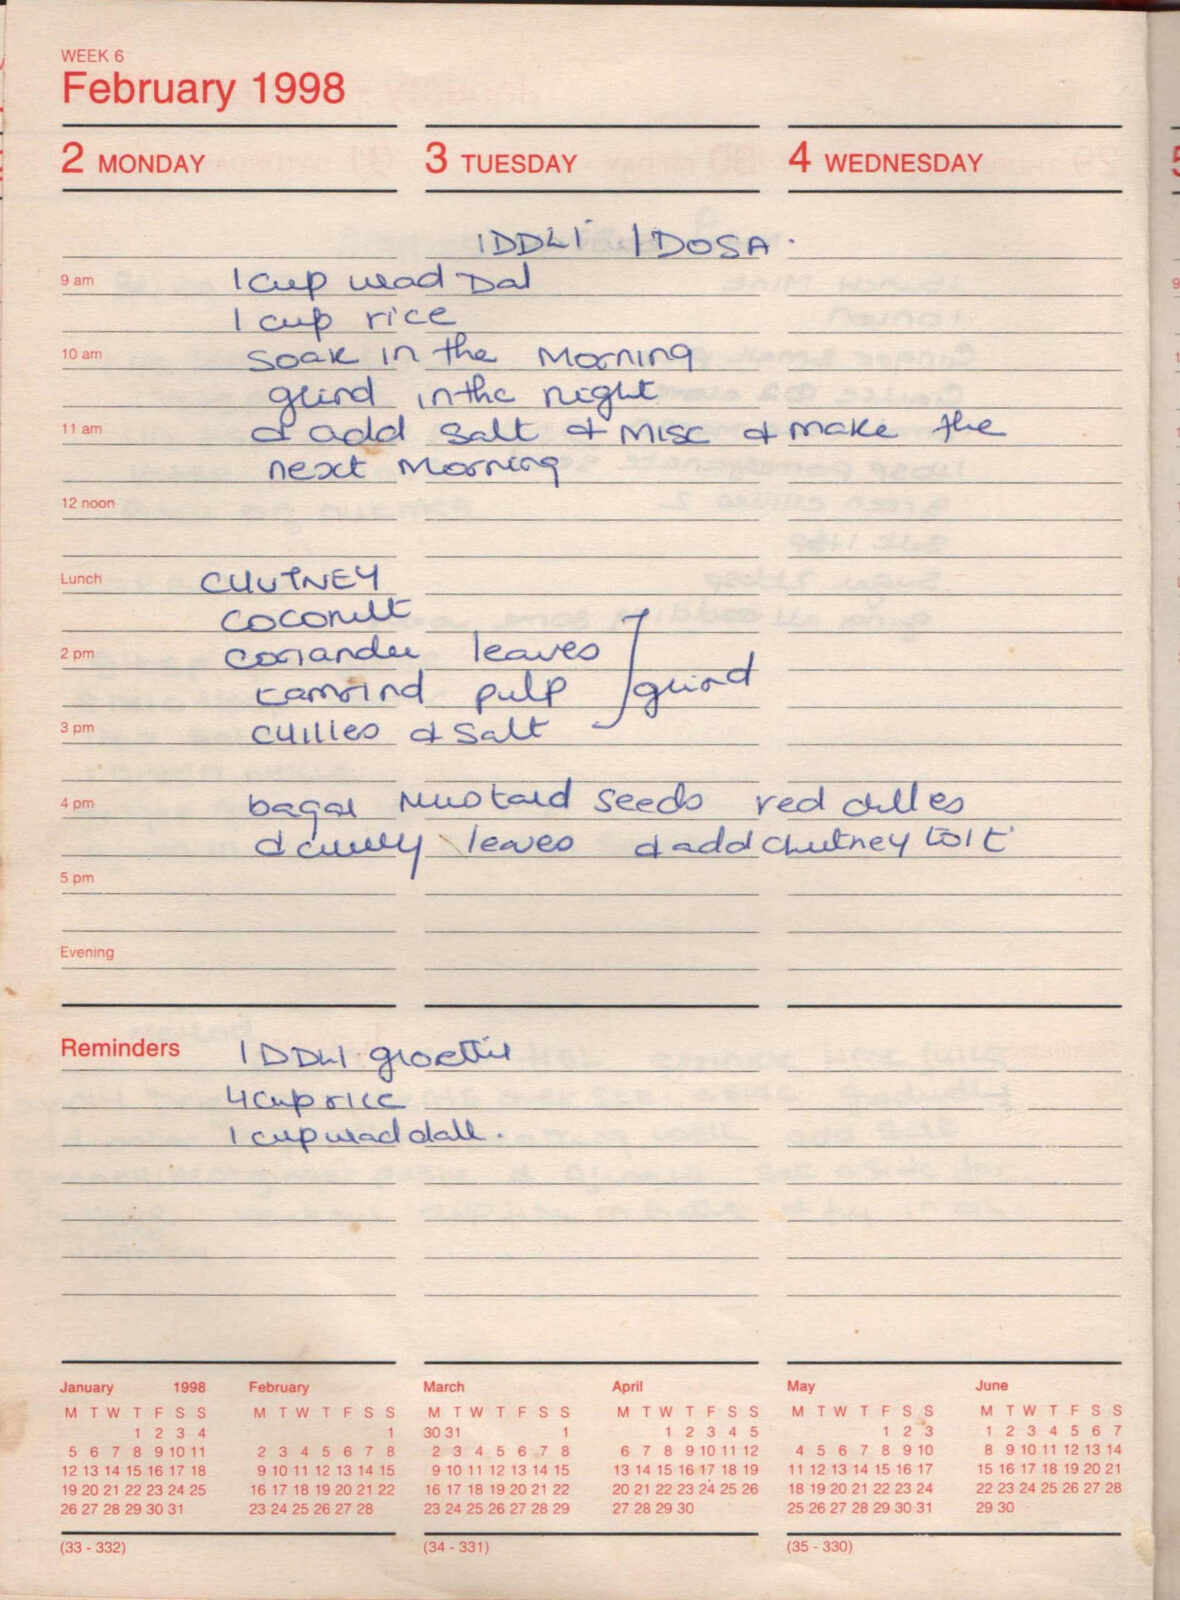 WEEK 6
February 1998
2 MONDAY 3 TUESDAY 4 WEDNESDAY
IDDLI / DOSA.
9 am 1 cup urad Dal
1 cup rice
10 am Soak in the Morning
grind in the night
11 am & add salt & Misc & make the
next Morning
12 noon
Lunch CHUTNEY
coconut
2 pm coriander leaves
tamrind pulp grind
3 pm chilles & salt
4 pm bagar Mustard seeds red chilles
& curry leaves & add chutney to it
5 pm
Evening
Reminders IDDLI
4 cup rice
1 cup urad dall.
January 1998 February March April May June
M T W T F S S M T W T F S S M T W T F S S M T W T F S S M T W T F S S M T W T F S S
1 2 3 4 1 30 31 1 1 2 3 4 5 1 2 3 1 2 3 4 5 6 7
5 6 7 8 9 10 11 2 3 4 5 6 7 8 2 3 4 5 6 7 8 6 7 8 9 10 11 12 4 5 6 7 8 9 10 8 9 10 11 12 13 14
12 13 14 15 16 17 18 9 10 11 12 13 14 15 9 10 11 12 13 14 15 13 14 15 16 17 18 19 11 12 13 14 15 16 17 15 16 17 18 19 20 21
19 20 21 22 23 24 25 16 17 18 19 20 21 22 16 17 18 19 20 21 22 20 21 22 23 24 25 26 18 19 20 21 22 23 24 22 23 24 25 26 27 28
26 27 28 29 30 31 23 24 25 26 27 28 23 24 25 26 27 28 29 27 28 29 30 25 26 27 28 29 30 31 29 30
(33 - 332) (34 - 331) (35 - 330)